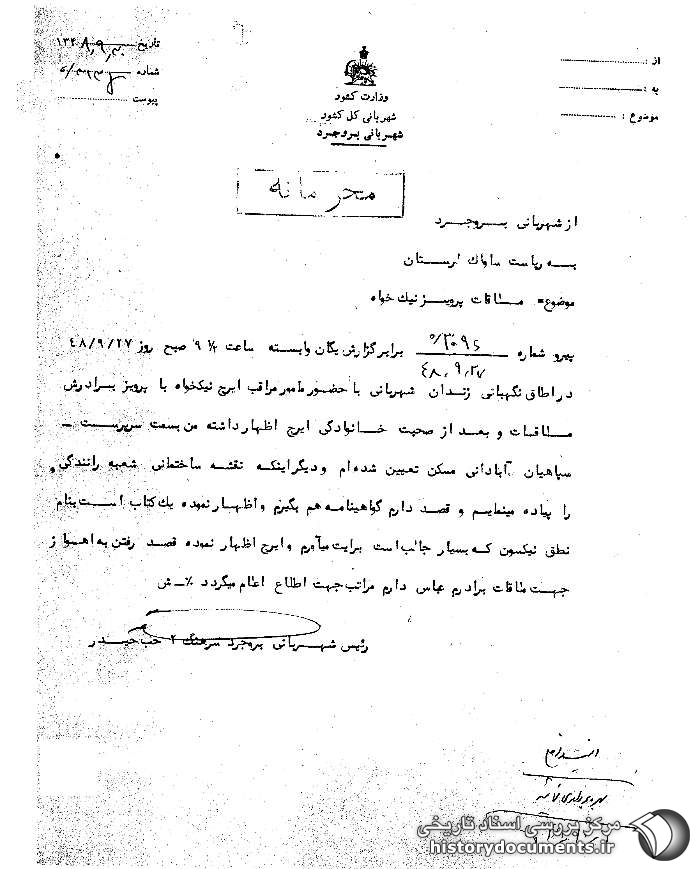 تاریخ ۱۳۴۸٫۹٫۳۰
شماره
پیوست
وزارت کشور
شهربانی کل کشور
شهربانی بروجرد
از :
به :
موضوع :
محرمانه
از شهربانی بروجرد
به ریاست ساواک لرستان
موضوع= ملاقات پرویز نیک خواه
پیرو شماره ۵/۳۰۹۶ ۴۸٫۹٫۲۷ برابر گزارش یگان وابسته ساعت ۹ ۱/۲ صبح روز ۴۸/۹/۲۷
در اطاق نگهبانی زندان شهربانی با حضور مامور مراقب ایرج نیکخواه با پرویز برادرش
ملاقات و بعد از صحبت خانوادگی ایرج اظهار داشته من بسمت سرپرست ـ
سپاهیان آبادانی مسکن تعیین شده ام و دیگر اینکه نقشه ساختمانی شعبه رانندگی
را پیاده مینمایم و قصد دارم گواهینامه هم بگیرم و اظهار نموده یک کتاب است بنام
نطق نیکسون که بسیار جالب است برایت میآورم و ایرج اظهار نموده قصد رفتن به اهواز
جهت ملاقات برادرم عباس دارم مراتب جهت اطلاع اعلام میگردد ٪ـ ش
رئیس شهربانی بروجرد سرهنگ ۲ حب حیدر
مرکز بررسی اسناد تاریخی
historydocuments.ir